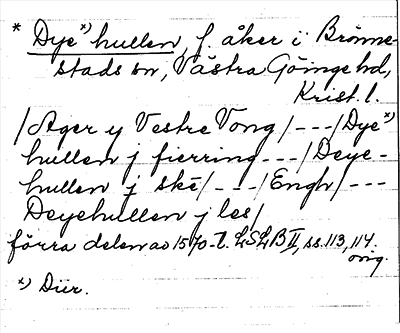 * Dye*) hullen, f. åker i Brönne-
stads sn, Västra Göinge hd,
Krist. l.
/Ager y Vestre Vong/---/Dye*)
hullen j fierring---/Deye-
hullen j skē/---/Engh/---
Deyehullen j les/
förra delen av 1570-t. LSLB II, ss. 113, 114
orig.
*) Diir.